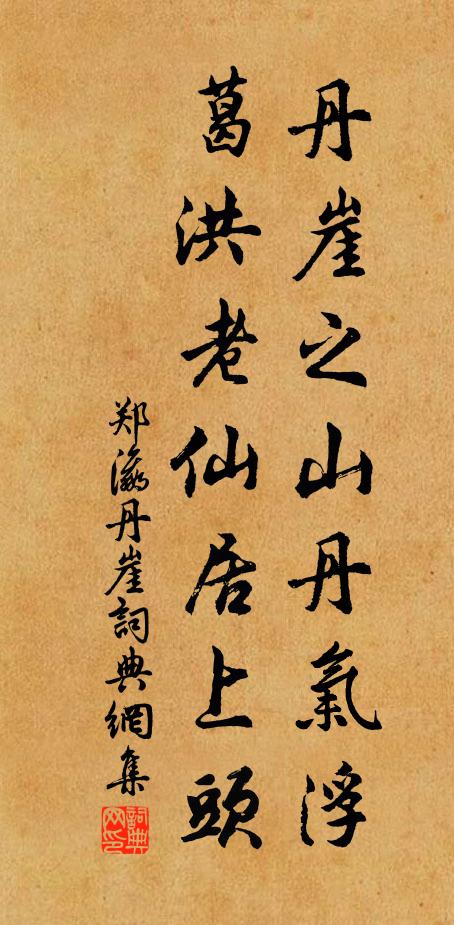 丹崖之山丹氣浮
葛洪老仙居上頭
郑瀛丹崖詞典網集
詞典网印